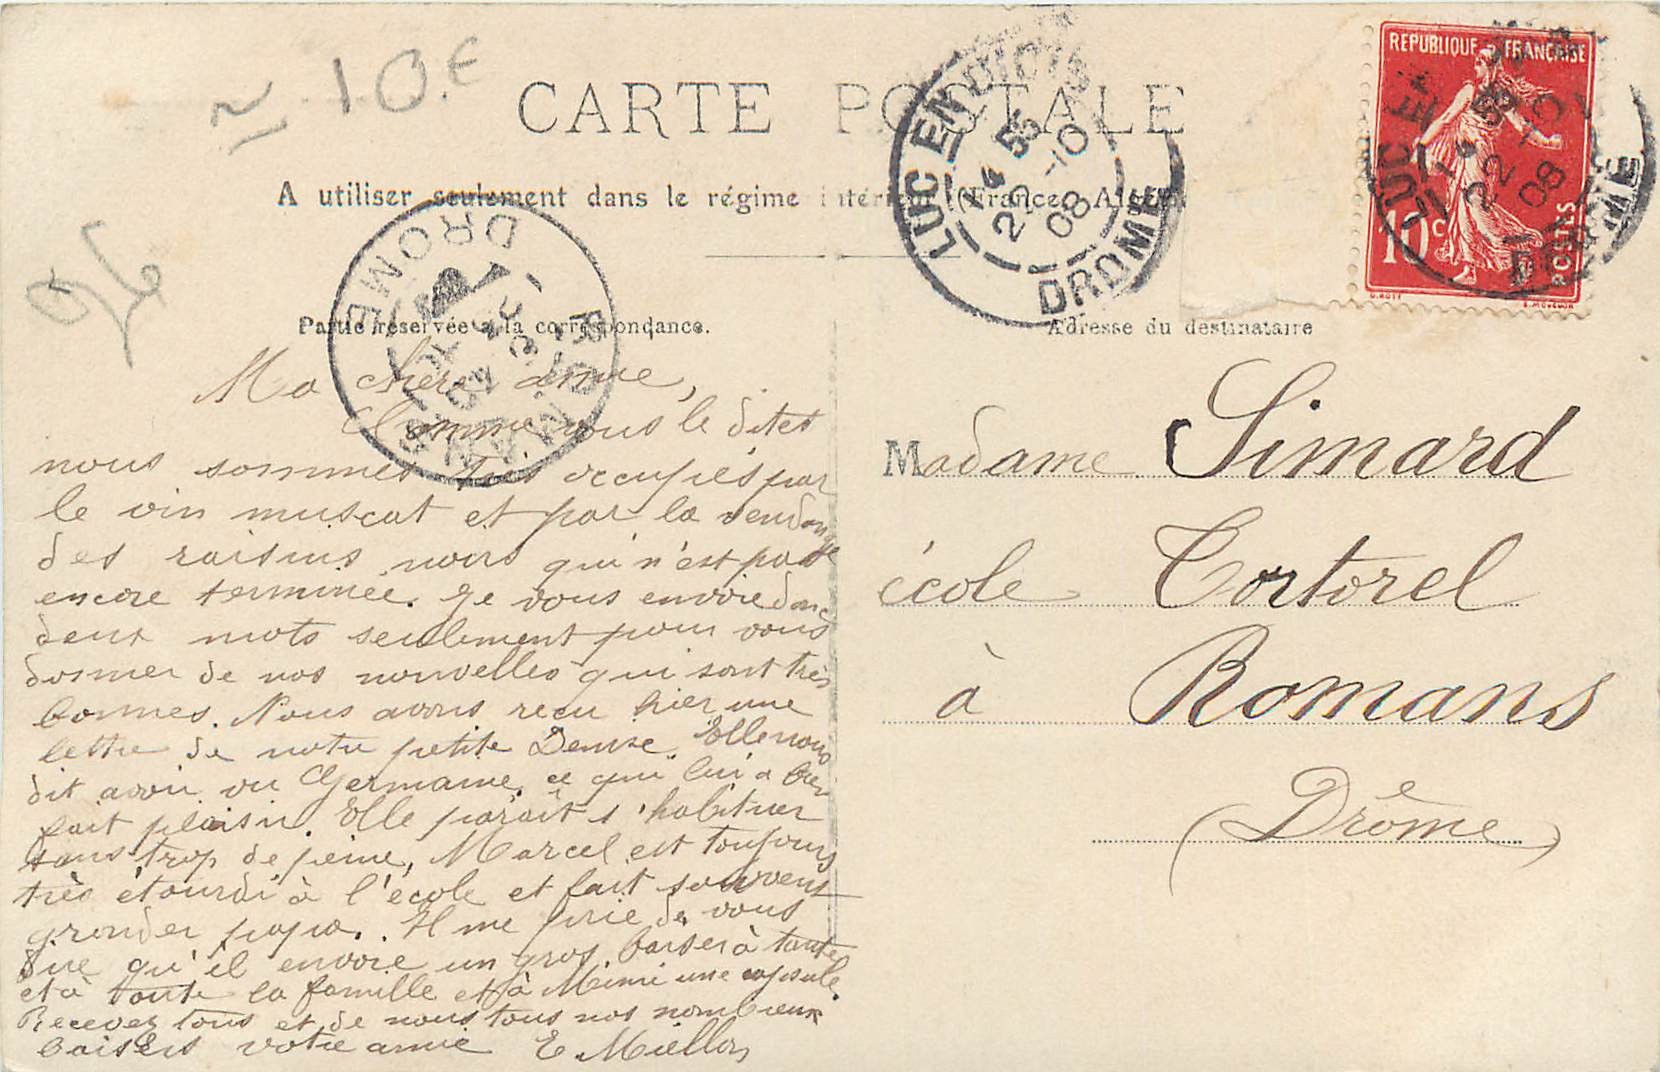 ≈ 10 €
CARTE POSTALE
A utiliser seulement dans le régime intérieur (France, Algérie
26
LUC EN DIOIS
14 55
22 -10
08
DROME
REPUBLIQUE FRANÇAISE
10c
POSTES
O. ROTY
E. MOUCHON
LUC EN
14 55
22 -10
08
DROME
ROMANS
DROME
Partie réservée à la correspondance.
Adresse du destinataire
Ma chère amie,
Comme vous le dites
nous sommes très occupés par
le vin muscat et par la vendange
des raisins noirs qui n'est pas
encore terminée. Je vous envoie donc
deux mots seulement pour vous
donner de nos nouvelles qui sont très
bonnes. Nous avons reçu hier une
lettre de notre petite Denise. Elle nous
dit avoir vu Germaine, ce qui lui a bien
fait plaisir. Elle paraît s'habituer
sans trop de peine, Marcel est toujours
très étourdi à l'école et fait souvent
gronder papa. Il me prie de vous
dire qu'il envoie un gros baiser à tante
et à toute la famille et à Mimi une capsule.
Recevez tous et de nous tous nos nombreux
baisers votre amie E. Miellon
Madame Simard
école Tortorel
à Romans
(Drôme)